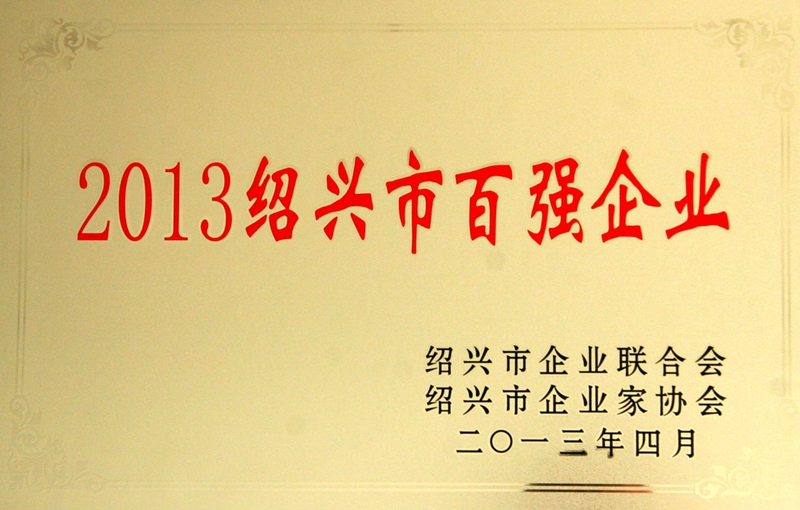 2013绍兴市百强企业
绍兴市企业联合会
绍兴市企业家协会
二〇一三年四月